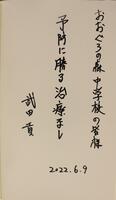 おおぐろの森中学校の皆様
予防に勝る治療なし
武田 貢
2022.6.9